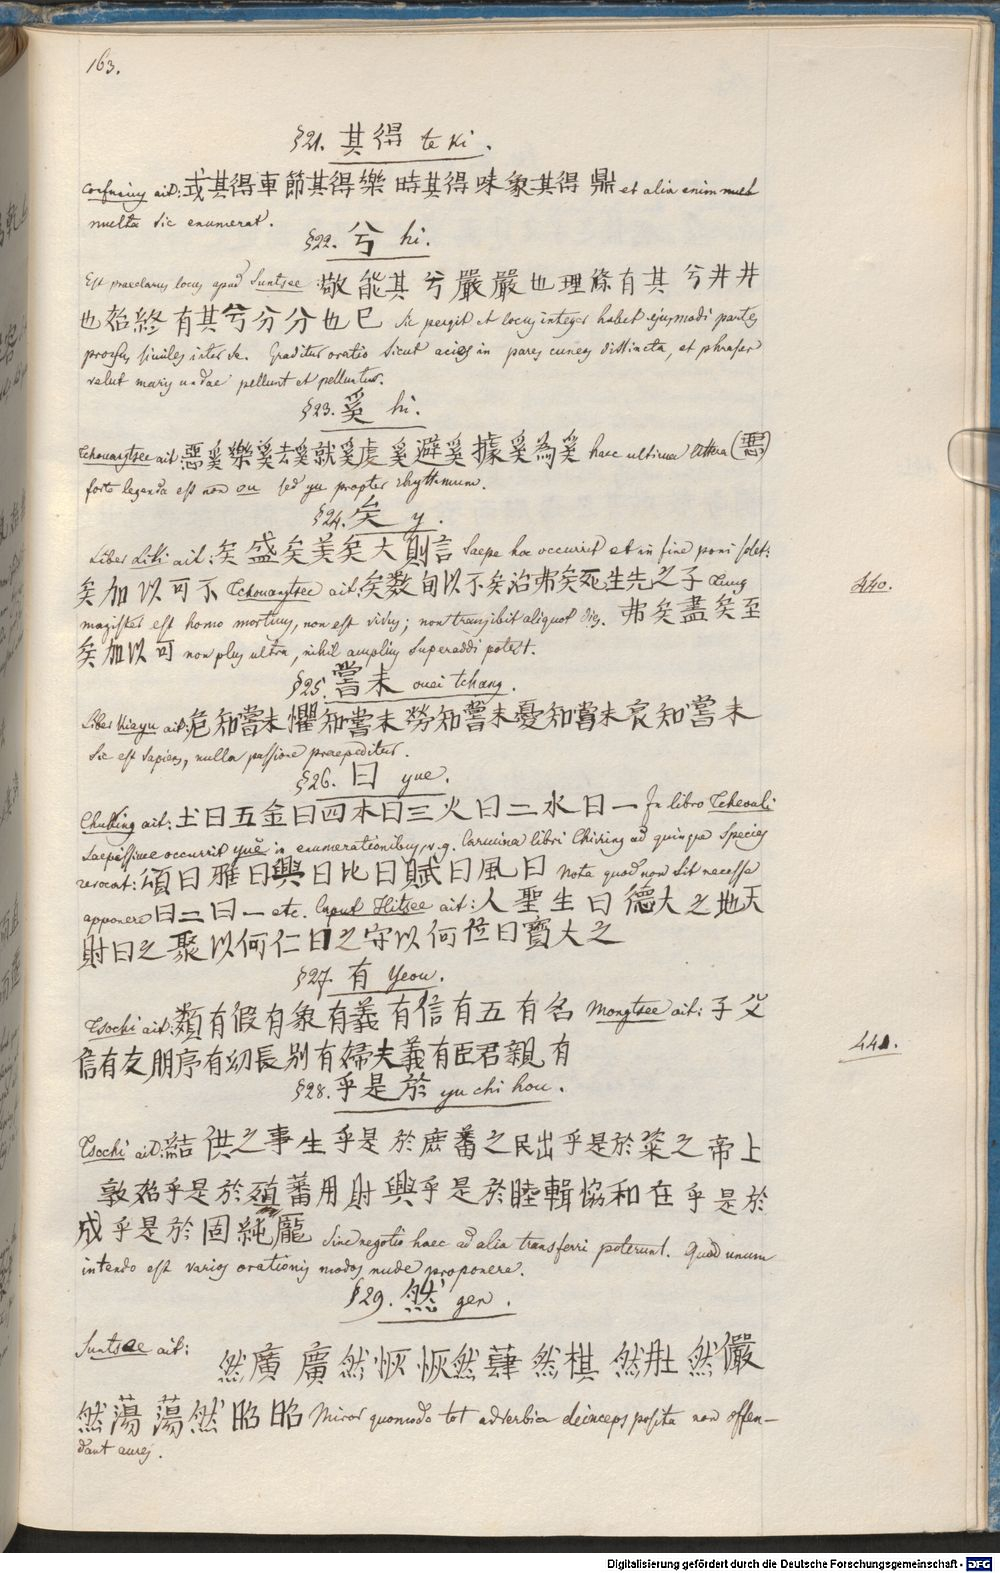 163.
§21. 其得 te ki.
Confucius ait: 式其得車節其得樂 時其得味象其得鼎 et alia enim mult
multa sic enumerat.
§22. 兮 hi.
Est praeclarus locus apud Suntsee: 敬能其兮嚴嚴也理條有其兮井井
也始終有其兮分分也已 Sic pergit et locus integer habet ejusmodi partes
prorsus similes inter se. Graditur oratio sicut acies in pares cuneos distincta, et phrases
velut maris undae pellunt et pelluntur.
§23. 奚 hi.
Tchouangtsee ait: 惡奚樂奚去奚就奚處奚避奚據奚為奚 haec ultima littera (惡)
forte legenda est non ou sed yu propter rhythmum.
§24. 矣 y.
Liber Liki ait: 矣盛矣美矣大則言 Saepe hoc occurrit et in fine poni solet:
矣加以可不 Tchouangtsee ait: 矣数旬以不矣治弗矣死生先之子 Tung
magister est homo mortuus, non est vivus; non transibit aliquot dies. 弗矣盡矣至
矣加以可 non plus ultra, nihil amplius superaddi potest.
§25. 嘗未 ouei tchang.
Liber Kiayu ait: 危知嘗未懼知嘗未勞知嘗未憂知嘗未哀知嘗未
Sic est sapiens, nulla passione praepeditus.
§26. 曰 yue.
Chuking ait: 土曰五金曰四木曰三火曰二水曰一 In libro Tcheouli
saepissime occurrit yuĕ in enumerationibus, v.g. Carmina libri Chiking ad quinque species
revocat: 頌曰雅曰興曰比曰賦曰風曰 Nota quod non sit necesse
apponere 曰二曰一 etc. Caput Hitsee ait: 人聖生曰德大之地天
財曰之聚以何仁曰之守以何位曰寶大之
§27. 有 Yeou.
Tsochi ait: 類有假有象有義有信有五有名 Mongtsee ait: 子父
信有友朋序有幼長别有婦夫義有臣君親有
§28. 乎是於 yu chi hou.
Tsochi ait: 結供之事生乎是於庶蕃之民出乎是於粢之帝上
敦始乎是於殖蕃用財興乎是於睦輯協和在乎是於
成乎是於固純龐 Sine negotio haec ad alia transferri poterunt. Quod unum
intendo est varios orationis modos nude proponere.
§29. 然 gen.
Suntsae ait: 然廣廣然恢恢然肆然棋然壯然儼
然蕩蕩然昭昭 Miror quomodo tot adverbia deinceps posita non offen-
dant aures.
440.
441.
Digitalisierung gefördert durch die Deutsche Forschungsgemeinschaft - DFG